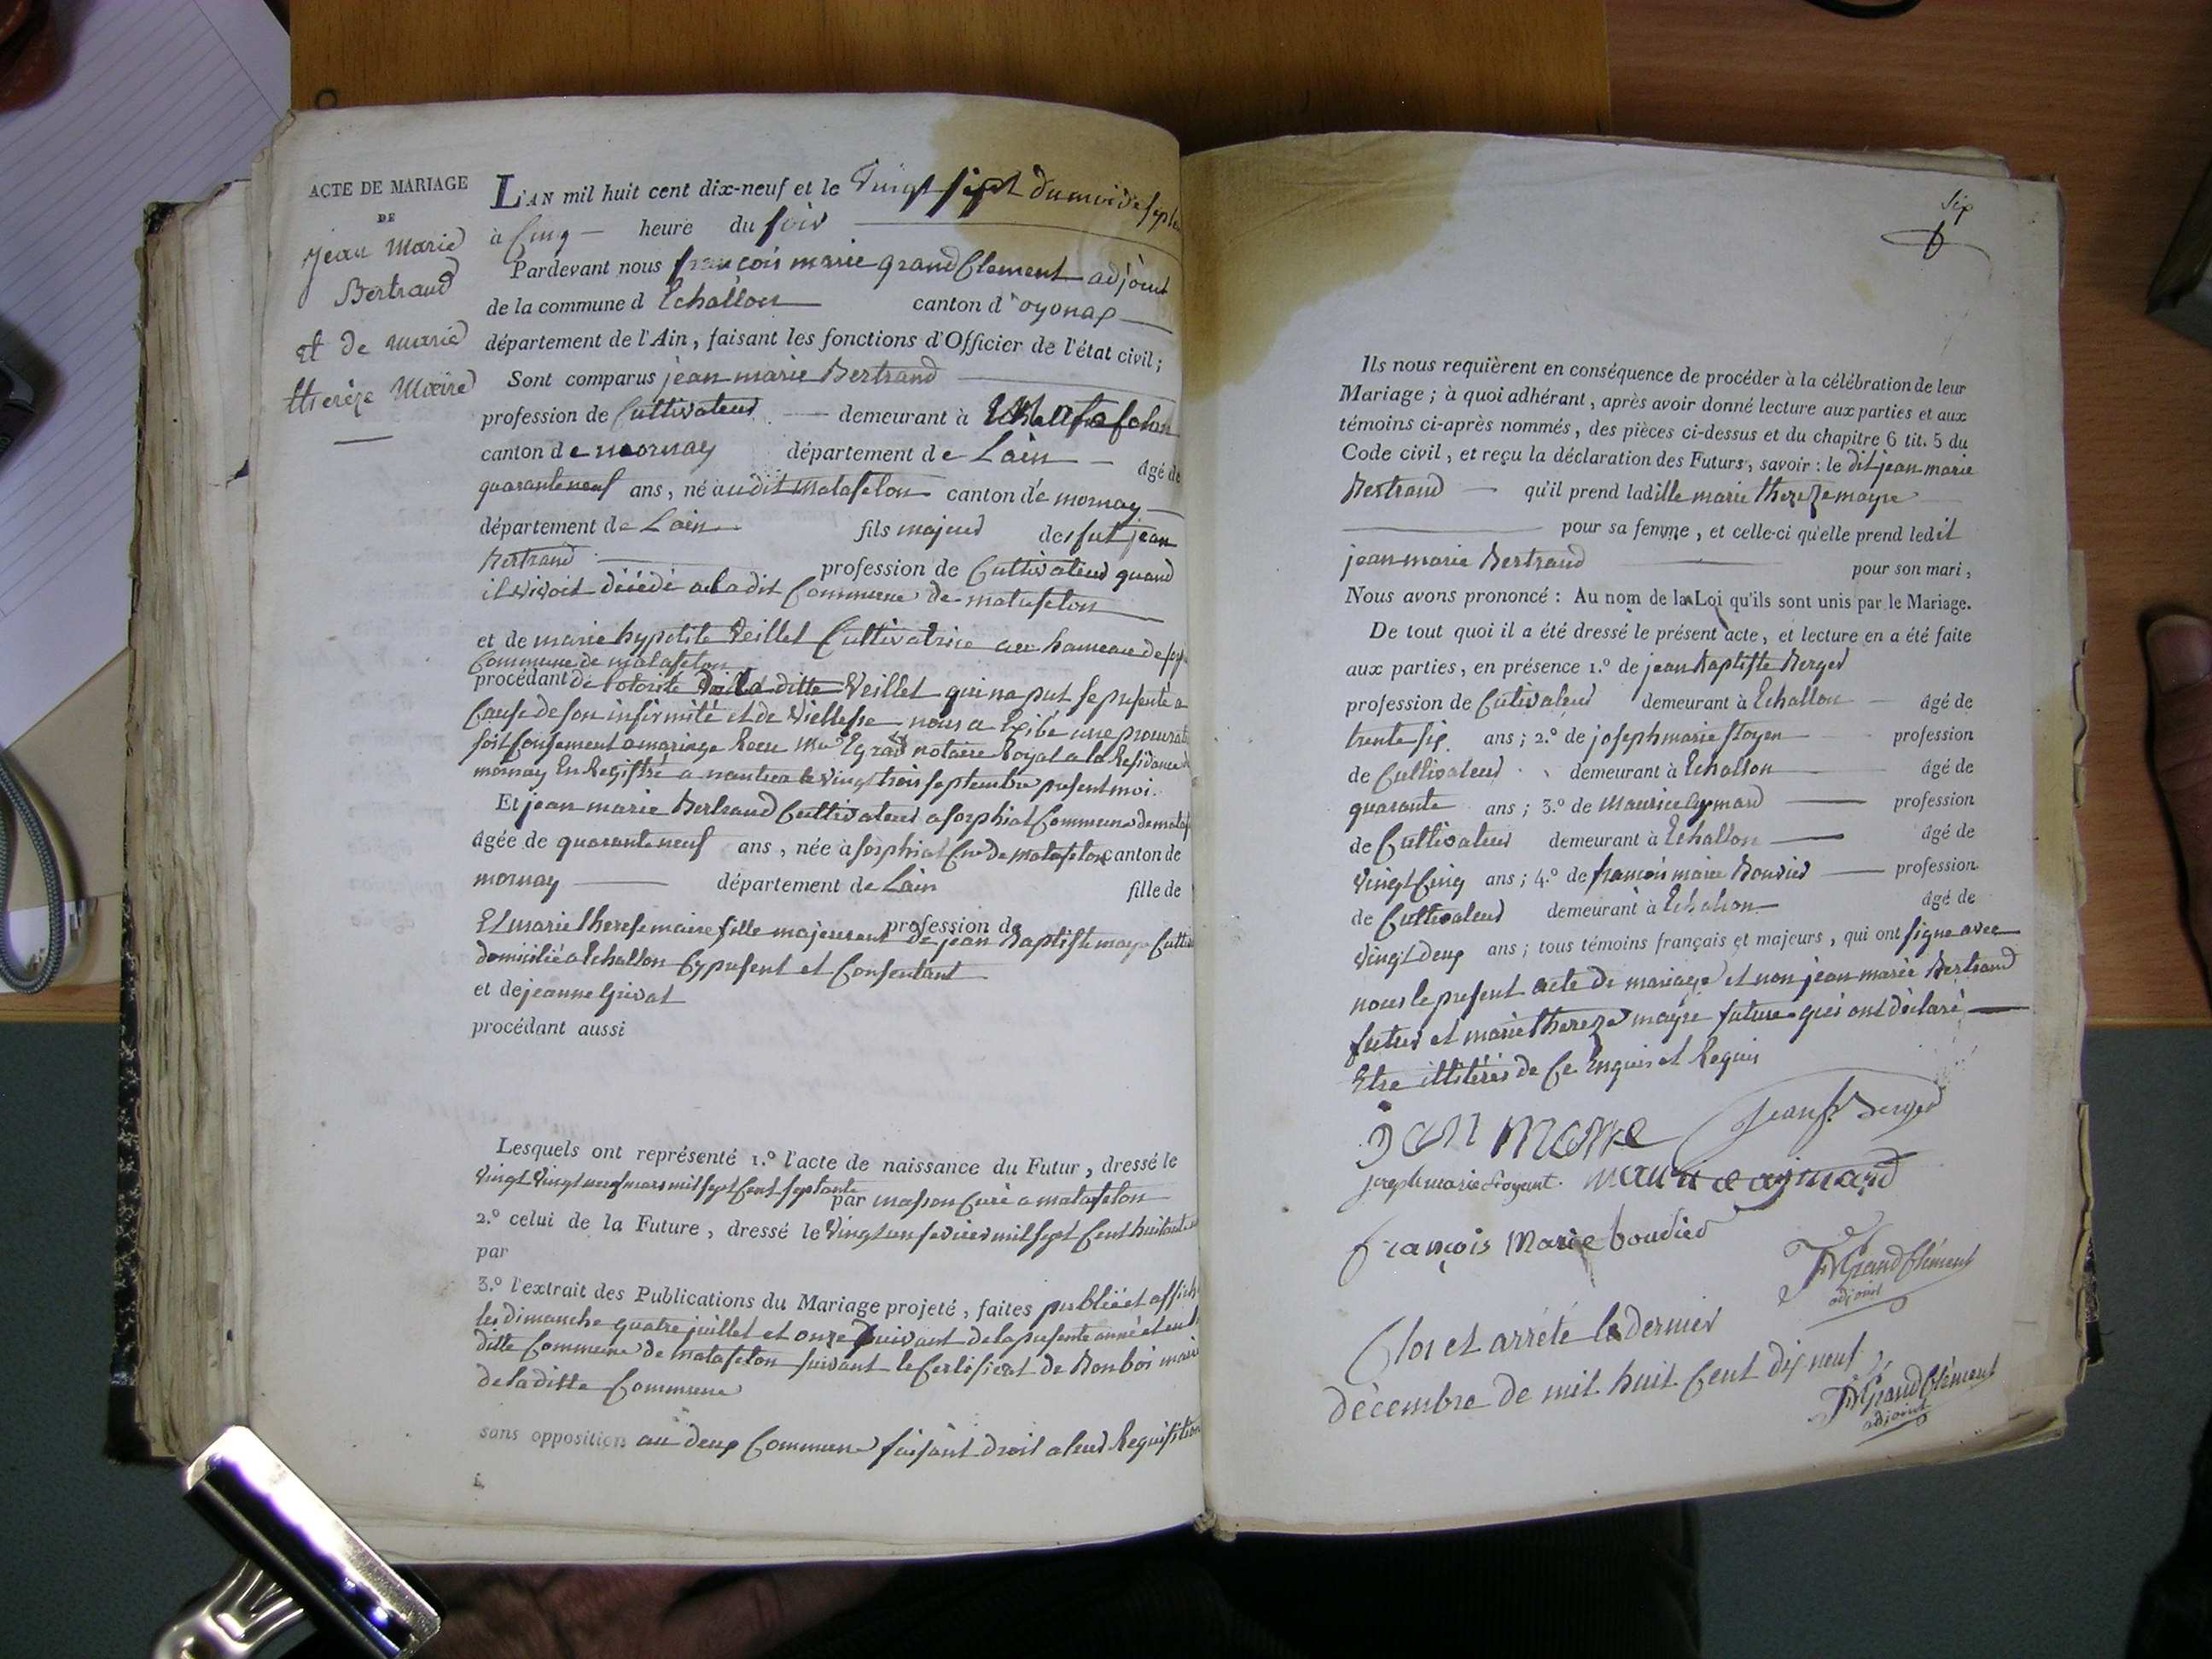 ACTE DE MARIAGE
DE
Jean Marie
Bertrand
et de marie
therèze Maire
L'AN mil huit cent dix-neuf et le Vingt sept du moi de septe
à Cinq heure du soir
Pardevant nous françois marie grandClement adjoint
de la commune d Echallon canton d'oyonax
département de l'Ain, faisant les fonctions d'Officier de l'état civil;
Sont comparus jean marie Bertrand
profession de Cultivateur demeurant à Matafelon
canton de mornay département de Lain âgé de
quarante neuf ans, né audit Matafelon canton de mornay
département de Lain fils majeur de feut jean
Bertrand profession de Cultivateur quand
il vivoit décédé a ladit Commune de matafelon
et de marie hypolite Veillet Cultivatrice au hameau de
Commune de matafelon
procédant de lotorité de la ditte Veillet qui na put se présenté a
Cause de son infirmité et de Viellesse nous a Exibé une procurat
soit Consement a mariage Recu Me notaire Royal a la Residance d
mornay En Registré a nantua le Vingt trois septembre present moi.
Et jean marie Bertrand Cultivateur a sorphiat Commune de mataf
âgée de quarante neuf ans, née à sorphiat Cne de matafelon canton de
mornay département de Lain fille de
Et marie therese maire fille majeure profession de
de jean Baptiste mayre Cultiv
domicilié a Echallon Cy present et Consentant
et de jeanne Grivat
procédant aussi
Lesquels ont représenté 1.º l'acte de naissance du Futur, dressé le
Vingt Vingt neuf mars mil sept Cent septante
par masson Curé a matafelon
2.º celui de la Future, dressé le Vingt un fevrier mil sept Cent huitante
par
3.º l'extrait des Publications du Mariage projeté, faites publié et affich
les dimanche quatre juillet et onze suivant de la presente anné et en la
ditte Commune de matafelon suivant le Certificat de Bonboi maire
de la ditte Commune
sans opposition au deux Commune faisant droit a leur Requisition
six
6
Ils nous requièrent en conséquence de procéder à la célébration de leur
Mariage; à quoi adhérant, après avoir donné lecture aux parties et aux
témoins ci-après nommés, des pièces ci-dessus et du chapitre 6 tit. 5 du
Code civil, et reçu la déclaration des Futurs, savoir: le dit jean marie
Bertrand qu'il prend ladille marie thereze mayre
pour sa femme, et celle-ci qu'elle prend ledit
jean marie Bertrand pour son mari,
Nous avons prononcé: Au nom de la Loi qu'ils sont unis par le Mariage.
De tout quoi il a été dressé le présent acte, et lecture en a été faite
aux parties, en présence 1.º de jean Baptiste Berger
profession de Cutivateur demeurant à Echallon âgé de
trente six ans; 2.º de joseph marie stoyen profession
de Cultivateur demeurant à Echallon âgé de
quarante ans; 3.º de Maurice aymard profession
de Cultivateur demeurant à Echallon âgé de
Vingt Cinq ans; 4.º de francoi marie Bouvier profession
de Cultivateur demeurant à Echallon âgé de
Vingt deux ans; tous témoins français et majeurs, qui ont signe avec
nous le present acte de mariage et non jean marie Bertrand
futur et marie thereze mayre future qui ont déclaré
Etre illitérés de Ce Enquis et Requis
Jan Maire
Jean Bte Berger
joseph marie stoyant.
Maurice aymard
François Marie bouvier
FMGrandClément
adjoint
Clos et arrété le dernier
décembre de mil huit Cent dix neuf
FMGrandClément
adjoint